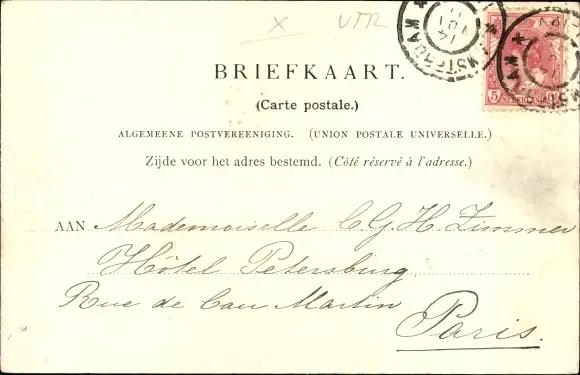 X UTR
AMSTERDAM
5 NEDERLAND
BRIEFKAART.
(Carte postale.)
ALGEMEENE POSTVEREENIGING. (UNION POSTALE UNIVERSELLE.)
Zijde voor het adres bestemd. (Côté réservé à l'adresse.)
AAN Mademoiselle C.G.H. Zimmer
Hôtel Petersburg
Rue de Cau Martin
Paris.